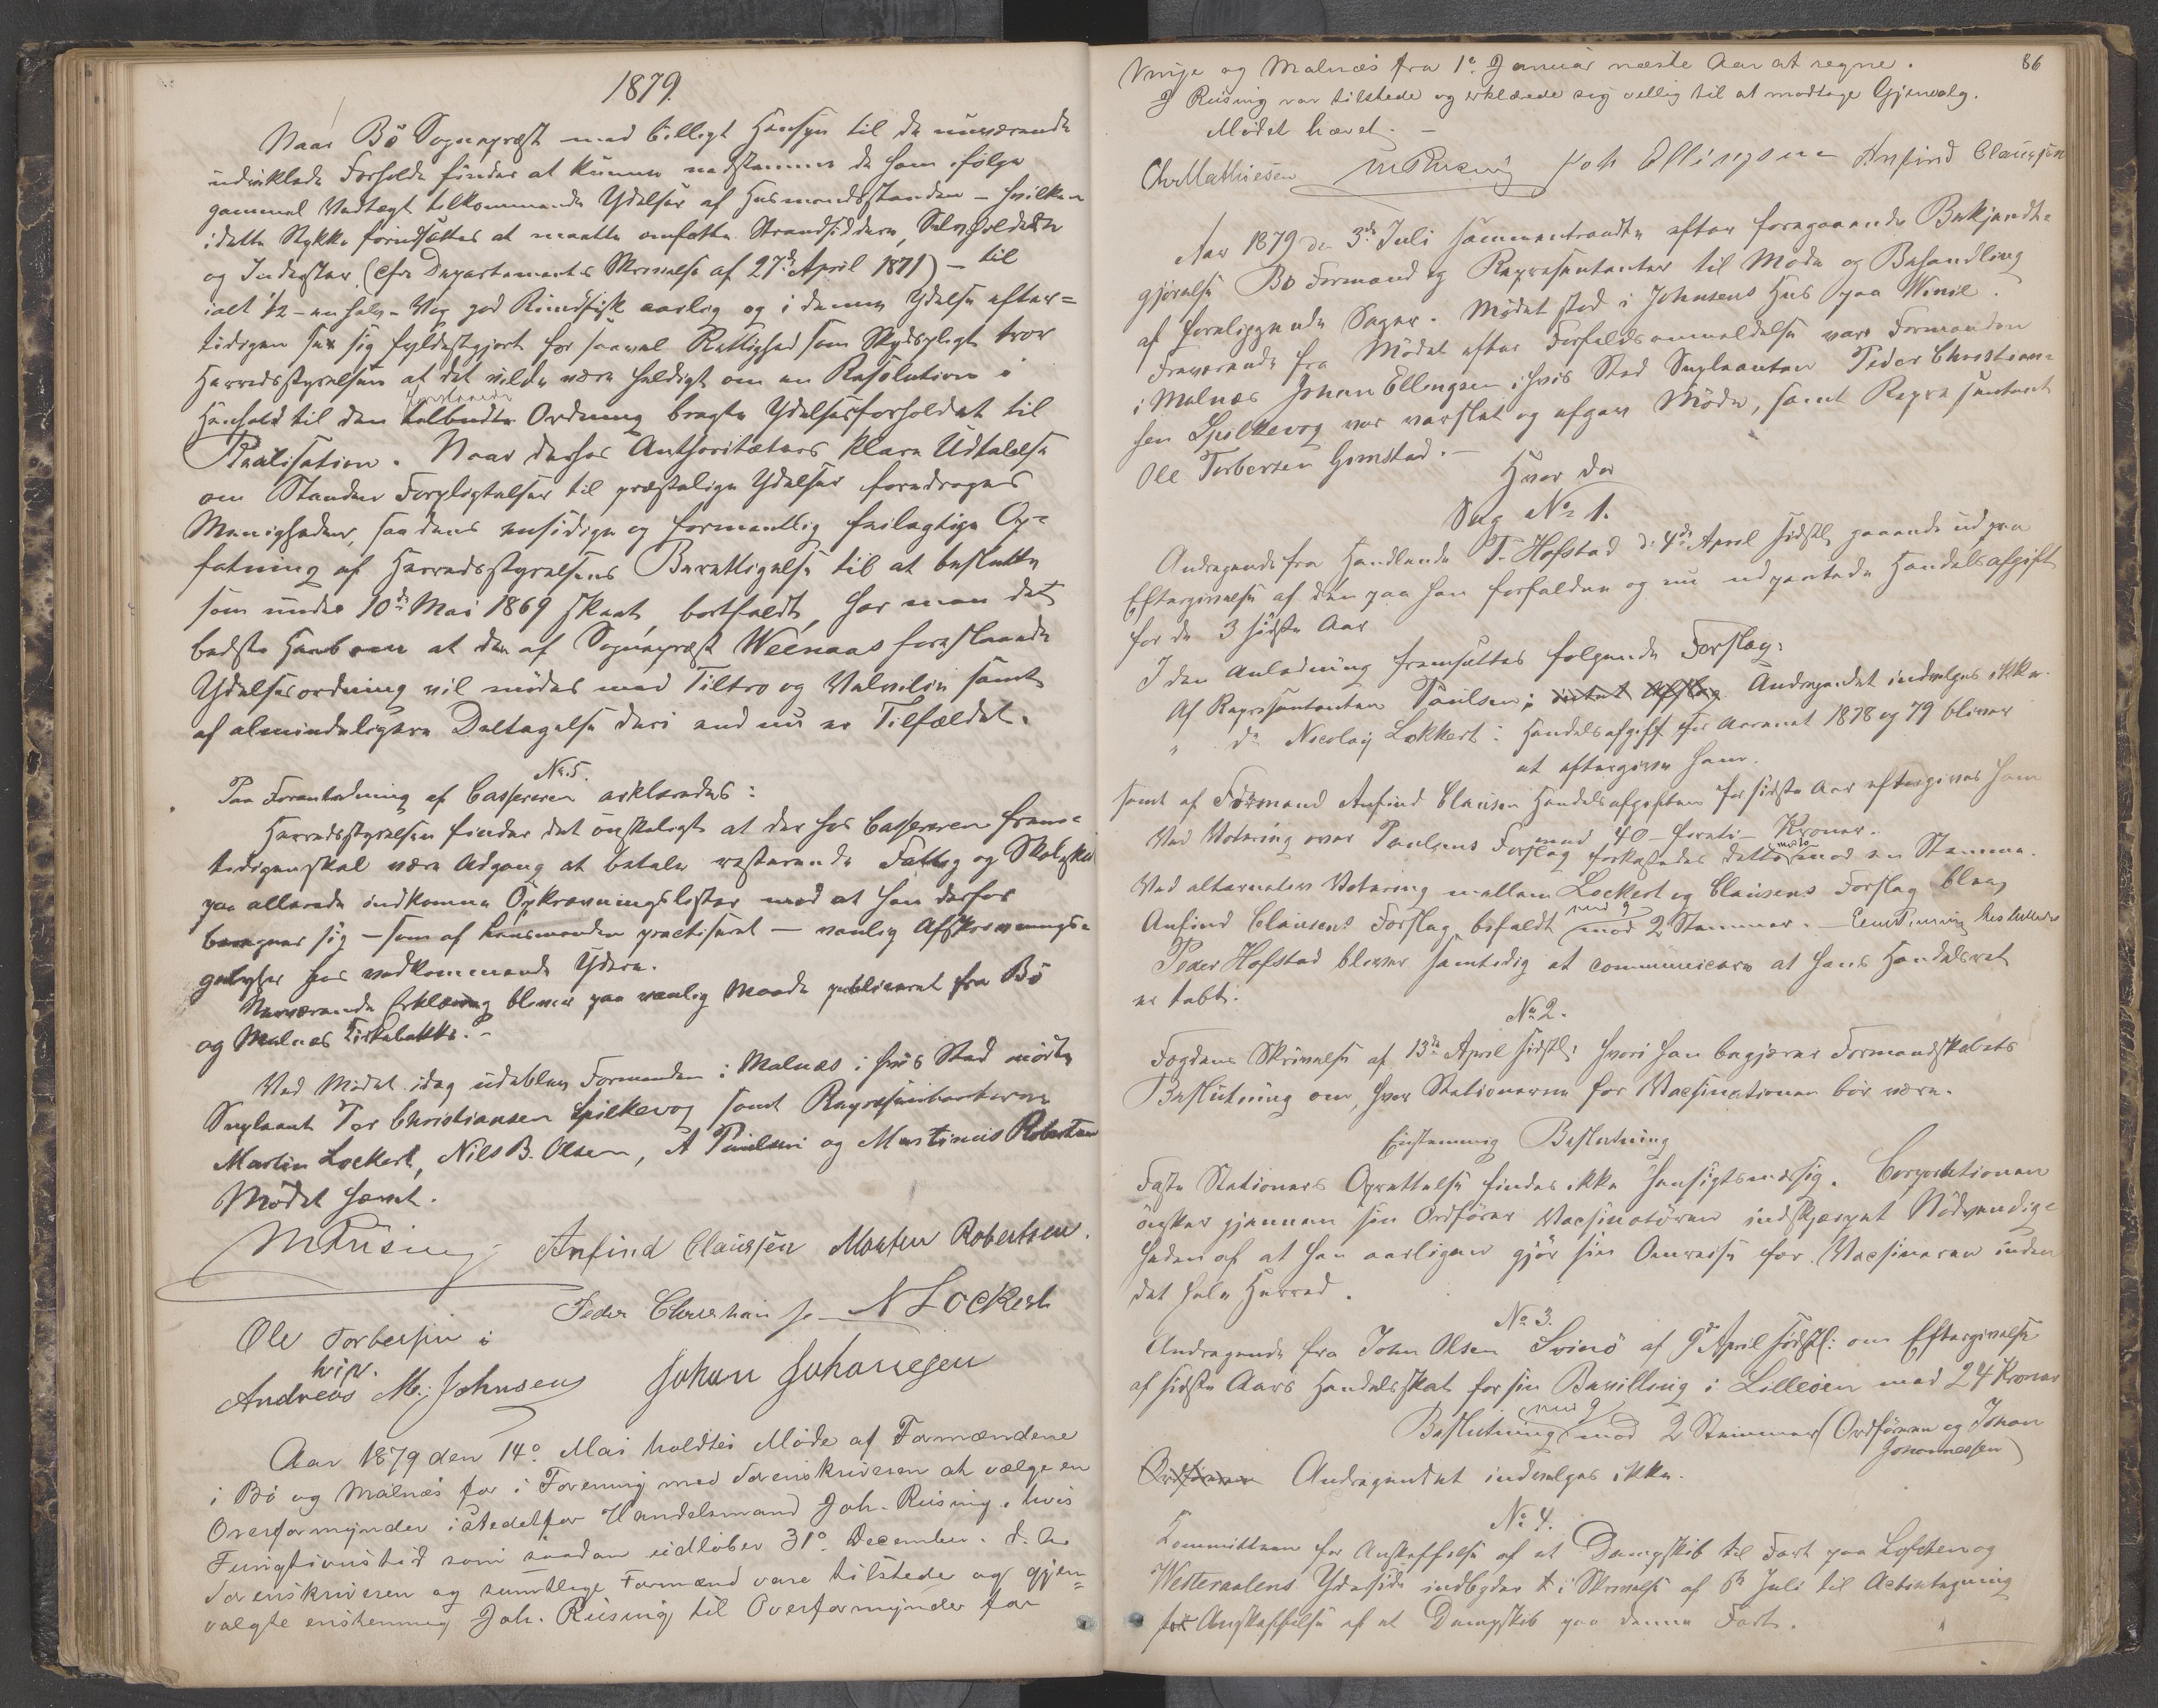 1879.
Naar Bö Sognepræst med billigt Hensyn til de nuværende
udviklede Forholde finder at kunne nedstemme de ham ifølge
gammel Vedtægt tilkommende Ydelser af Husmandsstanden – hvilken
i dette Stykke forudsættes at maatte omfatte Strandsiddere, Selvfolden
og Inderster (cfr Departements Skrivelse af 27de April 1871) – til
ialt 1/2 – en halv – Vog god Rundfisk aarlig og i denne Ydelse efter=
tidigen ser sig fyldestgjort for saavel Rettighed som Skydspligt tror
Herredsstyrelsen at det vilde være heldigt om en Resolution i
Henhold til den foreslaaede tilbudte Ordning bragte Ydelsesforholdet til
Realisation. Naar derhos Authoritæters klare Udtalelse
om Standens Forpligtelser til præstelige Ydelser foredrages
Menigheden, saa dens ensidige og formentlig feilagtige Op=
fatning af Herredsstyrelsens Berettigelse til at beslutte
som under 10de Mai 1869 skeet, bortfaldt, har man det
bedste Haab om at den af Sognepræst Weenaas foreslaaede
Ydelsesordning vil mödes med Tiltro og Velvilie samt
af almindeligere Deltagelse deri end nu er Tilfældet.
No. 5.
Paa Foranledning af Cassereren erklæredes:
Herredsstyrelsen finder det önskeligt at der hos Cassereren frem=
tidigen skal være Adgang at betale resterende Fattig og Skoleskat
paa allerede indkomne Opkrævningslister med at han derfor
beregner sig – som af Lensmanden practiseret – vanlig Afskrivnings=
gebyhr hos vedkommende Ydere.
Nærværende Erklæring bliver paa vanlig Maade publiceret fra Bö
og Malnes Kirkebakke. –
Ved Mödet idag udeblev Formanden i Malnæs i hvis Sted mödte
Supleant Per Christiansen Spilkevog samt Repræsentanterne
Martin Lockert, Nils B. Olsen, A Paulsen og Martinus Robertsen
Mödet hævet.
M Rüsing Anfind Claussen Morten Robertsen.
Peder Christiansen N Lockert
Ole Torbersen i
hvis.
Andreas M. Johnsen Johan Johannesen
Aar 1879 den 14o Mai holdtes Möde af Formændene
i Bö og Malnæs for i Forening med Sorenskriveren at vælge en
Overformynder istedetfor Handelsmand Joh. Rüsing, hvis
Fungtionstid som saadan udlöber 31o December d. A.
Sorenskriveren og samtlige Formænd vare tilstede og gjen=
valgte enstemmig Joh. Rüsing til Overformynder for
86
Vinje og Malnæs fra 1o Januar næste Aar at regne.
J Rüsing var tilstede og erklærede sig villig til at modtage Gjenvalg.
Mödet hævet. –
Chr Mathiesen M Rüsing Joh Ellingsen Anfind Claussen
Aar 1879 den 3de Juli sammentraadte efter foregaaende Bekjendt=
gjörelse Bö Formænd og Repræsentanter til Möde og Behandling
af foreliggende Sager. Mödet stod i Johnsens Hus paa Winie.
Fraværende fra Mödet efter Forfaldsanmeldelse vare Formanden
i Malnæs Johan Ellingsen i hvis Sted Supleanten Peder Christian=
sen Spilkevog var varslet og afgav Möde, samt Repræsentant
Ole Torbersen Gimstad. –
Hvor da
Sag No 1.
Andragende fra Handlende P. Hofstad d. 4de April sidstl. gaaende ud paa
Eftergivelse af den paa ham forfaldne og nu udpantede Handelsafgift
for de 3 sidste Aar
I den Anledning fremsattes fölgende Forslag:
Af Repræsentanten Paulsen: Andragendet indvilges ikke.
" do Nicolaij Lokkert: Handelsafgift for Aarenet 1878 og 79 bliver
at eftergive ham.
samt af Formand Anfind Clausen Handelsafgiften for sidste Aar eftergives ham
med 40 – forti – Kroner.
Ved Votering over Paulsens Forslag forkastedes dette mod en Stemme.
Ved alternativ Votering mellem Lockert og Clausens Forslag blev
Anfind Clausens Forslag bifaldt med 9 mod 2 Stemmer. –
Peder Hofstad bliver samtidig at communicere at hans Handelsret
er tabt.
No 2.
Fogdens Skrivelse af 13de April sidstl: hvori han begjærer Formandskabets
Beslutning om, hvor Stationerne for Vacsinationen bör være.
Enstemmig Beslutning
Faste Stationers Oprettelse findes ikke hensigtsmæssig. Corporationen
önsker gjennem sin Ordförer Vacsinatören indskjærpet Nödvendig=
heden af at han aarligen gjör sin Omreise for Vacsineren inden
det hele Herred.
No 3.
Andragende fra John Olsen Svinö af 9de April sidstl: om Eftergivelse
af sidste Aars Handelsskat for sin Bevilling i Lilleöen med 24 Kroner
Beslutning med 9 mod 2 Stemmer (Ordföreren og Johan
Johannessen)
Andragendet indvilges ikke.
No 4.
Kommitteen for Anskaffelse af et Dampskib til Fart paa Lofoten og
Westeraalens Yderside indbyder i Skrivelse af 6te Juli til Actietegning
for Anskaffelse af et Dampskib paa denne Fart.